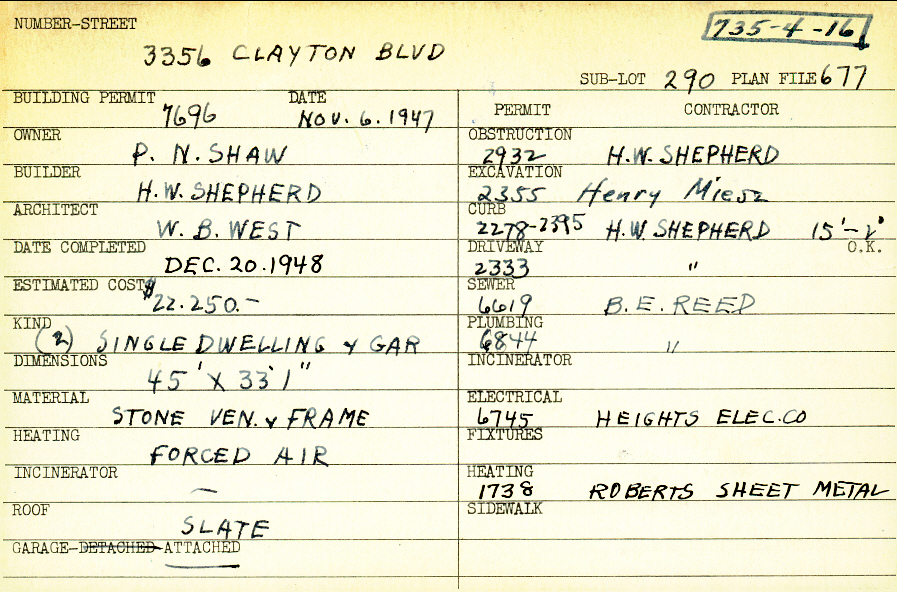 NUMBER-STREET
735-4-16
3356 CLAYTON BLVD
SUB-LOT 290 PLAN FILE 677
BUILDING PERMIT DATE
7696 NOV. 6. 1947
PERMIT CONTRACTOR
OWNER
P. N. SHAW
OBSTRUCTION
2932 H.W. SHEPHERD
BUILDER
H.W. SHEPHERD
EXCAVATION
2355 Henry Miesz
ARCHITECT
W. B. WEST
CURB
2278-2395 H.W. SHEPHERD 15'-
O.K.
DATE COMPLETED
DEC. 20. 1948
DRIVEWAY
2333 "
ESTIMATED COST $
22.250.-
SEWER
6619 B. E. REED
KIND
(2) SINGLE DWELLING & GAR
PLUMBING
6844 "
DIMENSIONS
45' X 33'1"
INCINERATOR
MATERIAL
STONE VEN. & FRAME
ELECTRICAL
6745 HEIGHTS ELEC. CO
HEATING
FORCED AIR
FIXTURES
INCINERATOR
—
HEATING
1738 ROBERTS SHEET METAL
ROOF
SLATE
SIDEWALK
GARAGE-DETACHED-ATTACHED